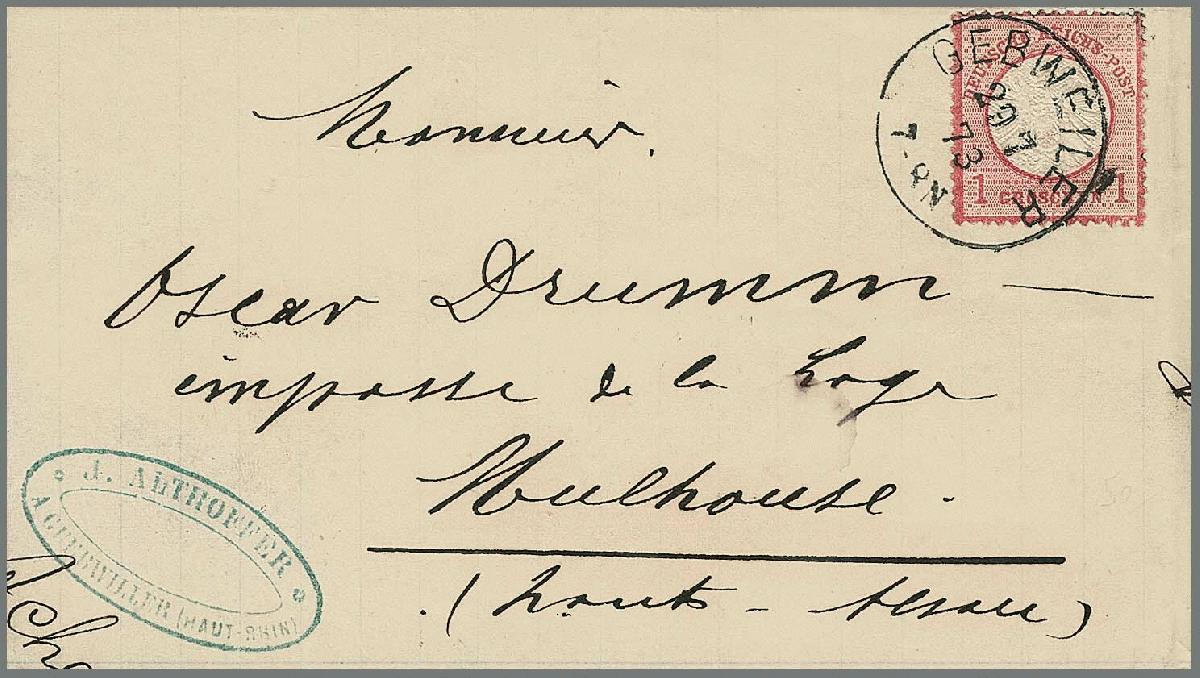 Monsieur.
Oscar Drumm —
impasse de la Loge
Mulhouse.
(haute-Alsace)
GEBWEILER
29 1
73
7-8 N
DEUTSCHE REICHS-POST
1 GROSCHEN 1
J. ALTHOFFER
A GUEBWILLER (HAUT-RHIN)